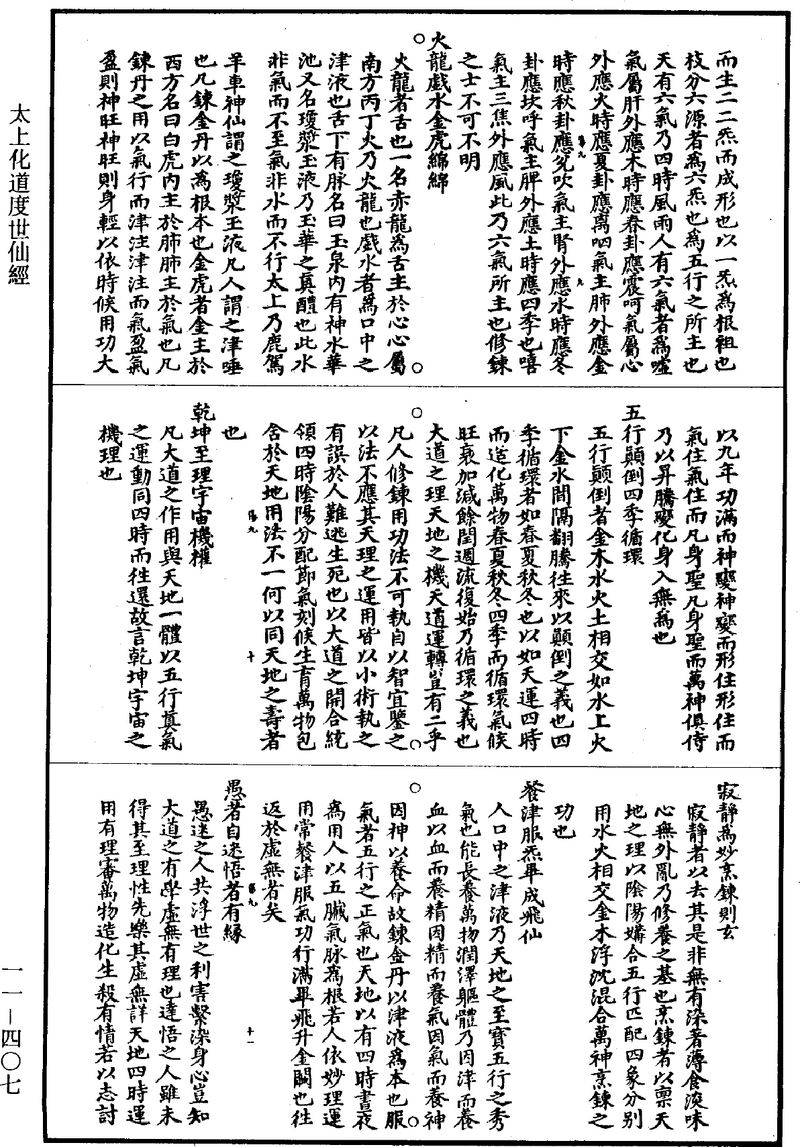 太上化道度世仙經
一一—四〇七
而生二二炁而成形也以一炁為根祖也
枝分六源者為六炁也為五行之所主也
天有六氣乃四時風雨人有六氣者為噓
氣屬肝外應木時應春卦應震呵氣屬心
外應火時應夏卦應离呬氣主肺外應金
時應秋卦應兌吹氣主腎外應水時應冬
卦應坎呼氣主脾外應土時應四季也嘻
氣主三焦外應風此乃六氣所主也修鍊
之士不可不明
火龍戲水金虎綿綿
火龍者舌也一名赤龍為舌主於心心屬
南方丙丁火乃火龍也戲水者為口中之
津液也舌下有脉名曰玉泉內有神水華
池又名瓊漿玉液乃玉華之真醴也此水
非氣而不至氣非水而不行太上乃鹿駕
羊車神仙謂之瓊漿玉液凡人謂之津唾
也凡鍊金丹以為根本也金虎者金主於
西方名曰白虎內主於肺肺主於氣也凡
鍊丹之用以氣行而津注津注而氣盈氣
盈則神旺神旺則身輕以依時候用功大
以九年功滿而神變神變而形住形住而
氣住氣住而凡身聖凡身聖而萬神俱侍
乃以昇騰變化身入無為也
五行顛倒四季循環
五行顛倒者金木水火土相交如水上火
下金水間隔翻騰往來以顛倒之義也四
季循環者如春夏秋冬也以如天運四時
而造化萬物春夏秋冬四季而循環氣候
旺衰加減餘閏週流復始乃循環之義也
大道之理天地之機天道運轉豈有二乎
凡人修鍊用功法不可執自以智宜鑒之
以法不應其天理之運用皆以小術執之
有誤於人難逃生死也以大道之開合統
領四時陰陽分配節氣刻候生育萬物包
含於天地用法不一何以同天地之壽者
也
乾坤至理宇宙機權
凡大道之作用與天地一體以五行真氣
之運動同四時而徃還故言乾坤宇宙之
機理也
寂靜為妙烹鍊則玄
寂靜者以去其是非無有染著薄食淡味
心無外亂乃修養之基也烹鍊者以禀天
地之理以陰陽媾合五行匹配四象分別
用水火相交金木浮沈混合萬神烹鍊之
功也
餐津服炁畢成飛仙
人口中之津液乃天地之至寶五行之秀
氣也能長養萬物潤澤軀體乃因津而養
血以血而養精因精而養氣因氣而養神
因神以養命故鍊金丹以津液為本也服
氣者五行之正氣也天地以有四時晝夜
為用人以五臟氣脉為根若人依妙理運
用常餐津服氣功行滿畢飛升金闕也徃
返於虛無者矣
愚者自迷悟者有緣
愚迷之人共浮世之利害繫染身心豈知
大道之有學虛無有理也達悟之人雖未
得其至理性先樂其虛無詳天地四時運
用有理審萬物造化生殺有情若以志討